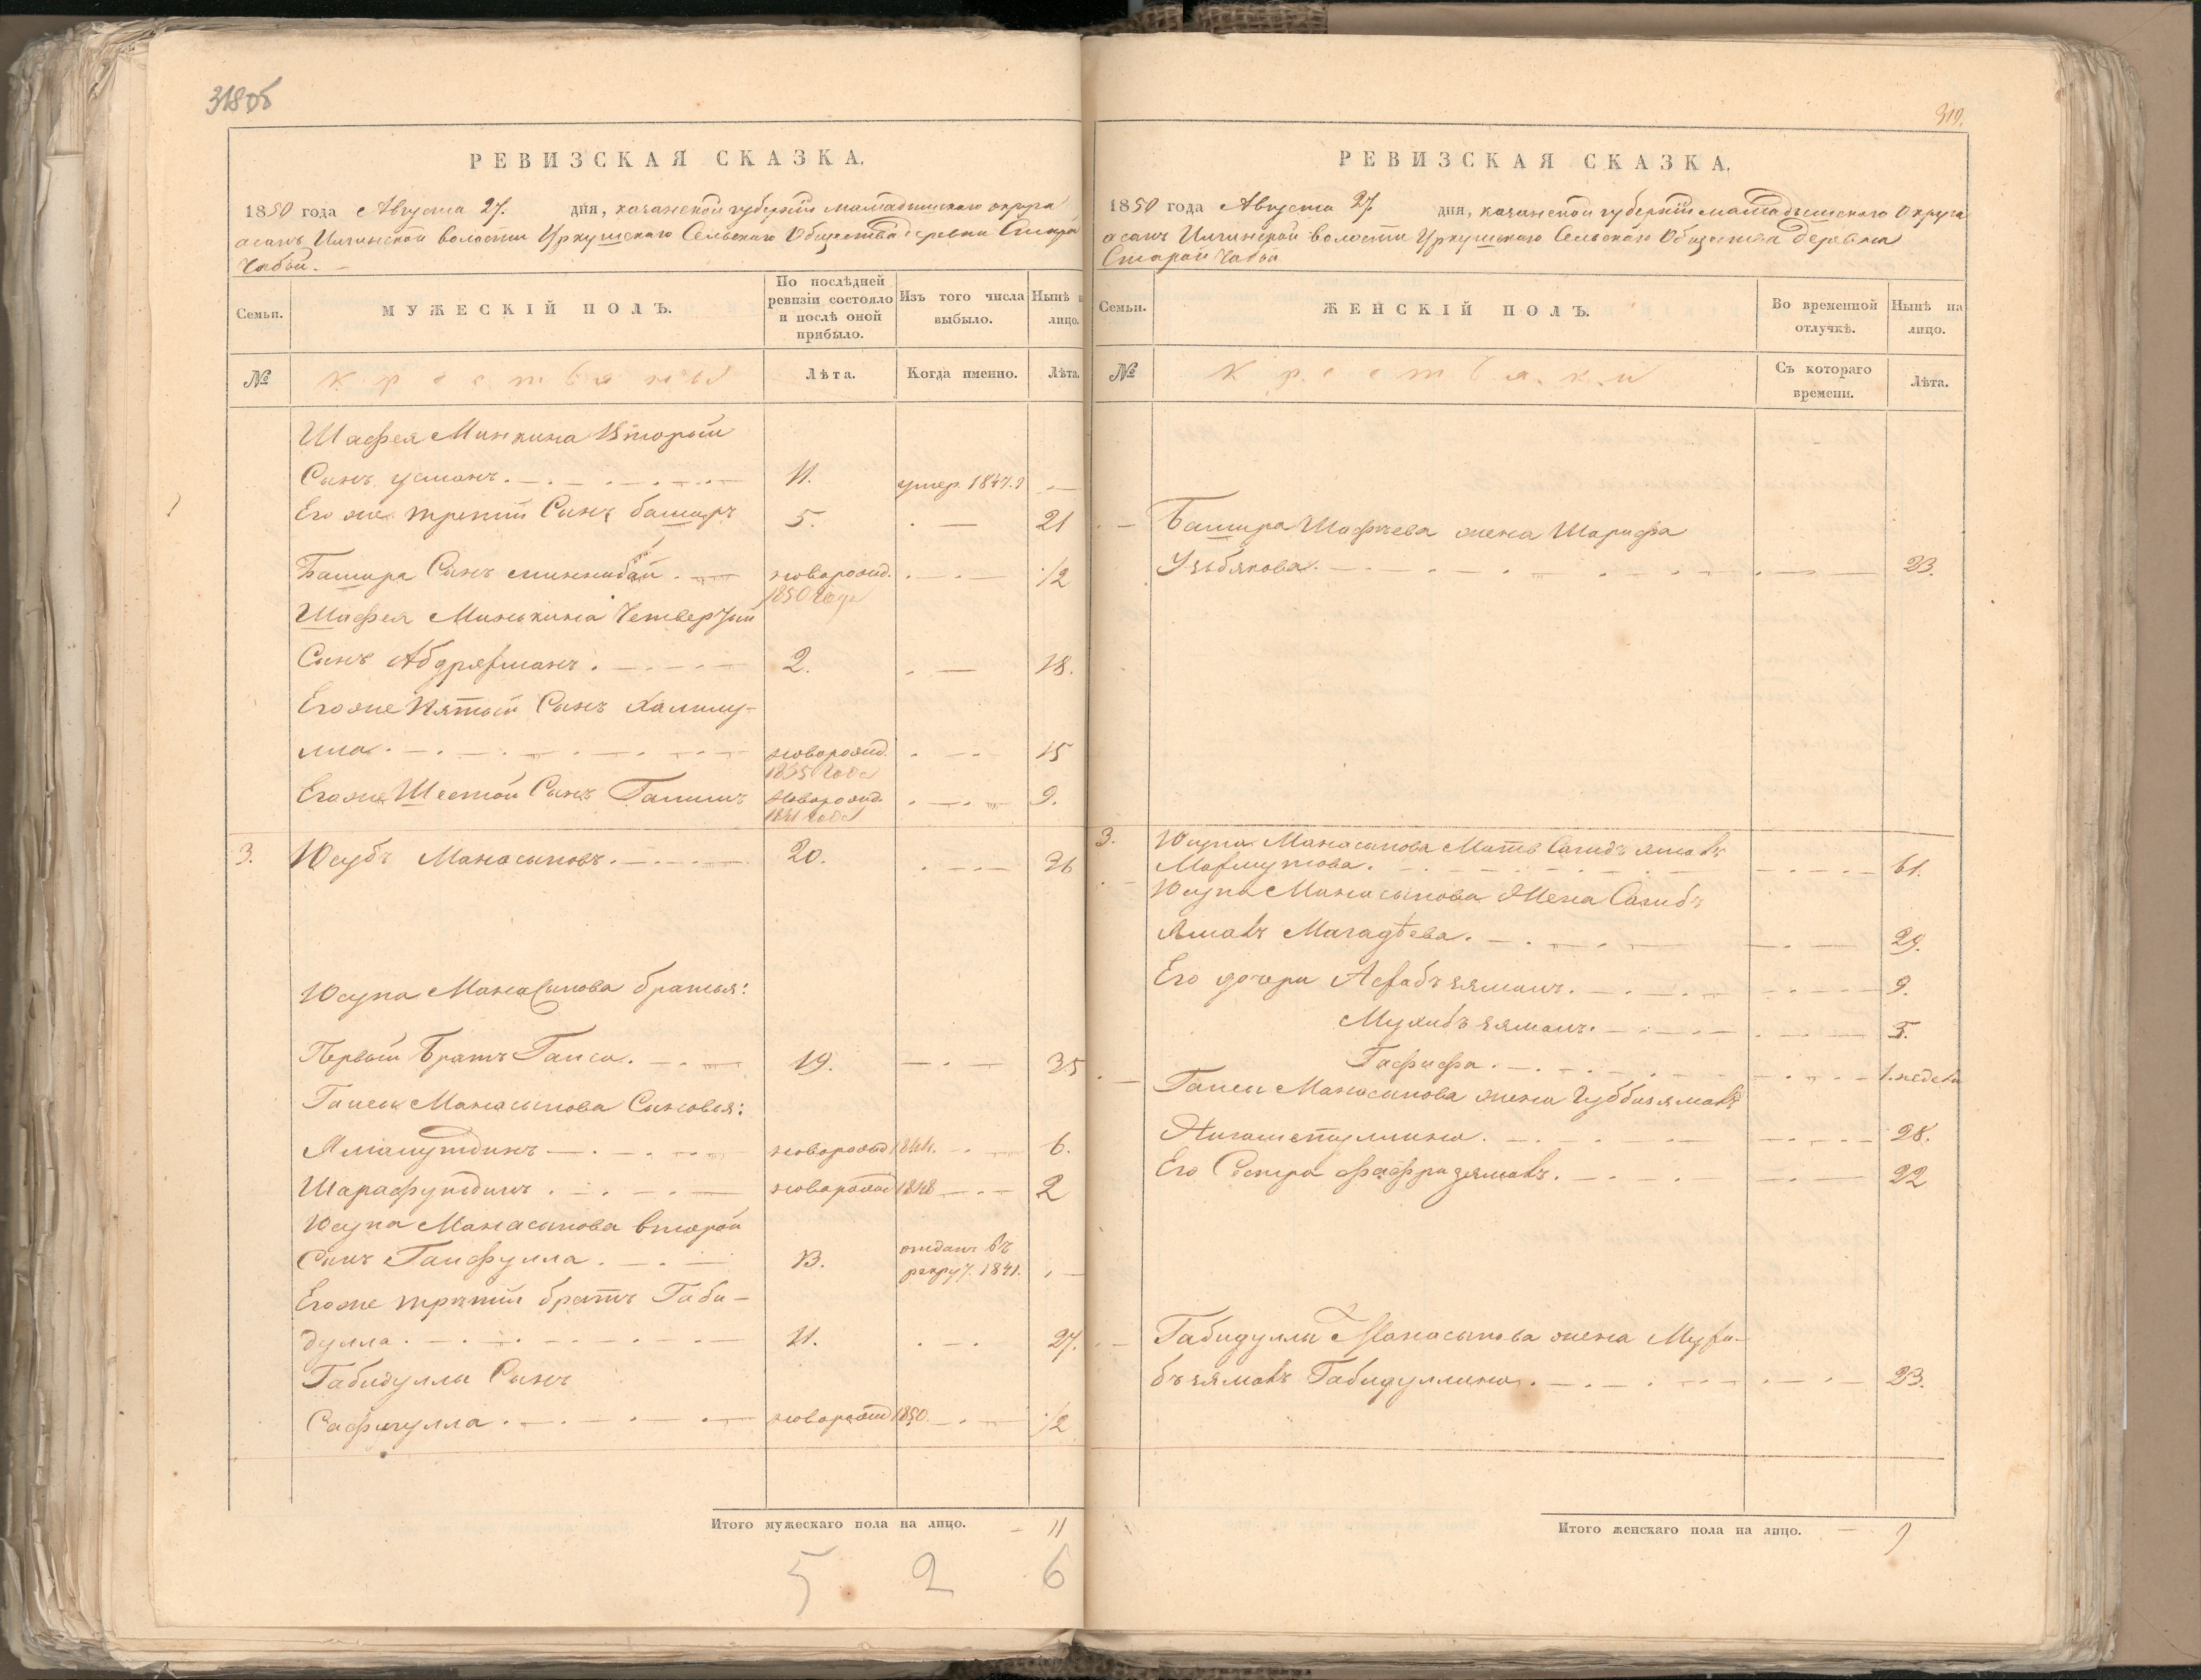 318 об
РЕВИЗСКАЯ СКАЗКА.
1850 года Августа 27. дня, казанской губерніи мамадышскаго округа
асанъ Илгинской волости Уркушскаго Сельскаго Общества деревни Старой
Чабьи.
Семьи.
МУЖЕСКІЙ ПОЛЪ.
По послѣдней
ревизіи состояло
и послѣ оной
прибыло.
Изъ того числа
выбыло.
Нынѣ
лицо.
№
Крестьяны
Лѣта.
Когда именно.
Лѣта.
Шафея Минкина Второй
Сынъ усманъ. 11. умер. 1847. —
Его же третій Сынъ башыръ 5. — 21
Башира Сынъ миннибай. новорожд. 1/2
1850 года
Шафея Минькина Четвертый
Сынъ Абдряхманъ. 2. — 18.
Его же Пятый Сынъ Халилу-
лла. новорожд. 15
1835 года
Его же Шестой Сынъ Галимъ новорожд. 9.
1841 года
3. Юсубъ Манасыповъ. 20. 36
Юсупа Манасыпова братья:
Первый Братъ Гаиса. 19. 35
Гаисы Манасыпова Сыновья:
Ямалутдинъ новорожд 1844. 6.
Шарафутдинъ. новорожд 1848 2
Юсупа Манасыпова второй
Сынъ Гайфулла. 13. отданъ въ
рекрут. 1841.
Его же третій братъ Габи-
дулла. 11. 27.
Габидуллы Сынъ
Сафиулла. новорожд 1850. 1/2
Итого мужескаго пола на лицо. — 11
5 2 6
319.
РЕВИЗСКАЯ СКАЗКА.
1850 года Августа 27. дня, казанской губерніи мамадышскаго Округа
асанъ Илгинской волости Уркушскаго Сельскаго Общества деревни
Старой Чабьи
Семьи.
ЖЕНСКІЙ ПОЛЪ.
Во временной
отлучкѣ.
Нынѣ на
лицо.
№
Крестьянки
Съ котораго
времени.
Лѣта.
Башира Шафѣева жена Шарифа
Узьбякова. 23.
3. Юсупа Манасыпова Мать Сагидъ ямалъ
Махмутова. 61.
Юсупа Манасыпова Жена Сагибъ
Ямалъ Магадѣева. 29.
Его дочери Асхабъ зяманъ. 9.
Мухибъ зяманъ. 5.
Гафифа. 1. недели
Гаисы Манасыпова жена Губбизямалъ
28.
Его Сестра Фахризямалъ. 22
Габидуллы Манасыпова жена Мухи-
бъзямалъ Габидуллина. 23.
Итого женскаго пола на лицо. — 9